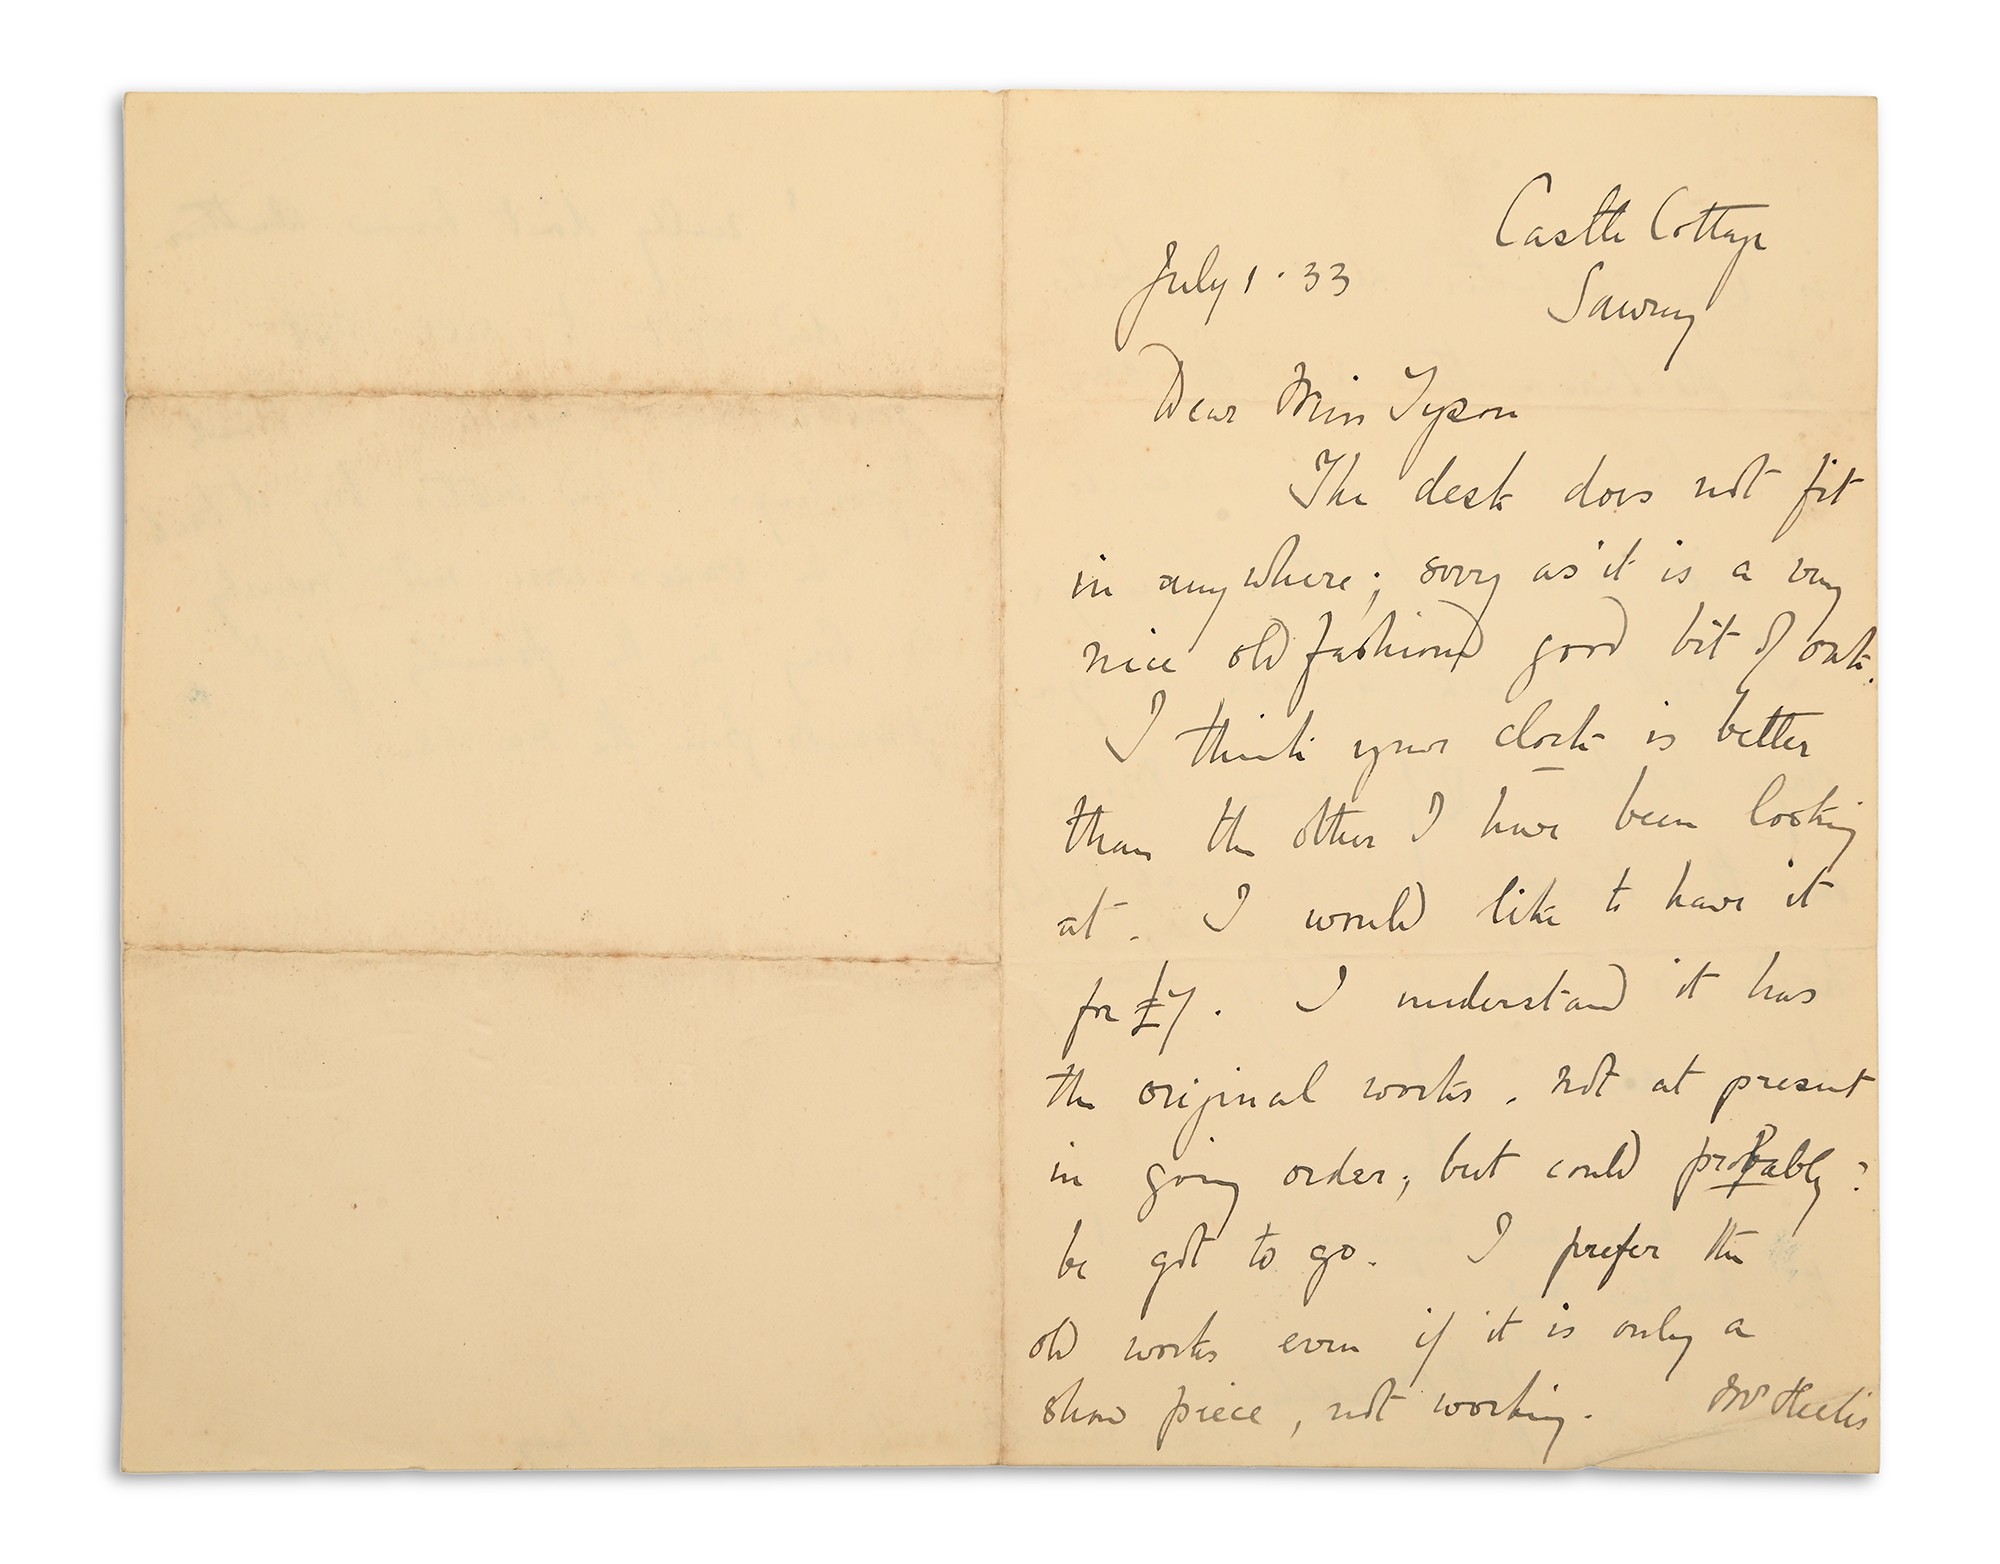 Castle Cottage
July 1 . 33
Sawrey
Dear Miss Tyson
The desk does not fit
in anywhere; sorry as it is a very
nice old fashioned good bit of oak.
I think your clock is better
than the other I have been looking
at. I would like to have it
for £7. I understand it has
the original works. not at present
in going order; but could probably?
be got to go. I prefer the
old works even if it is only a
show piece, not working. Mr Heelis